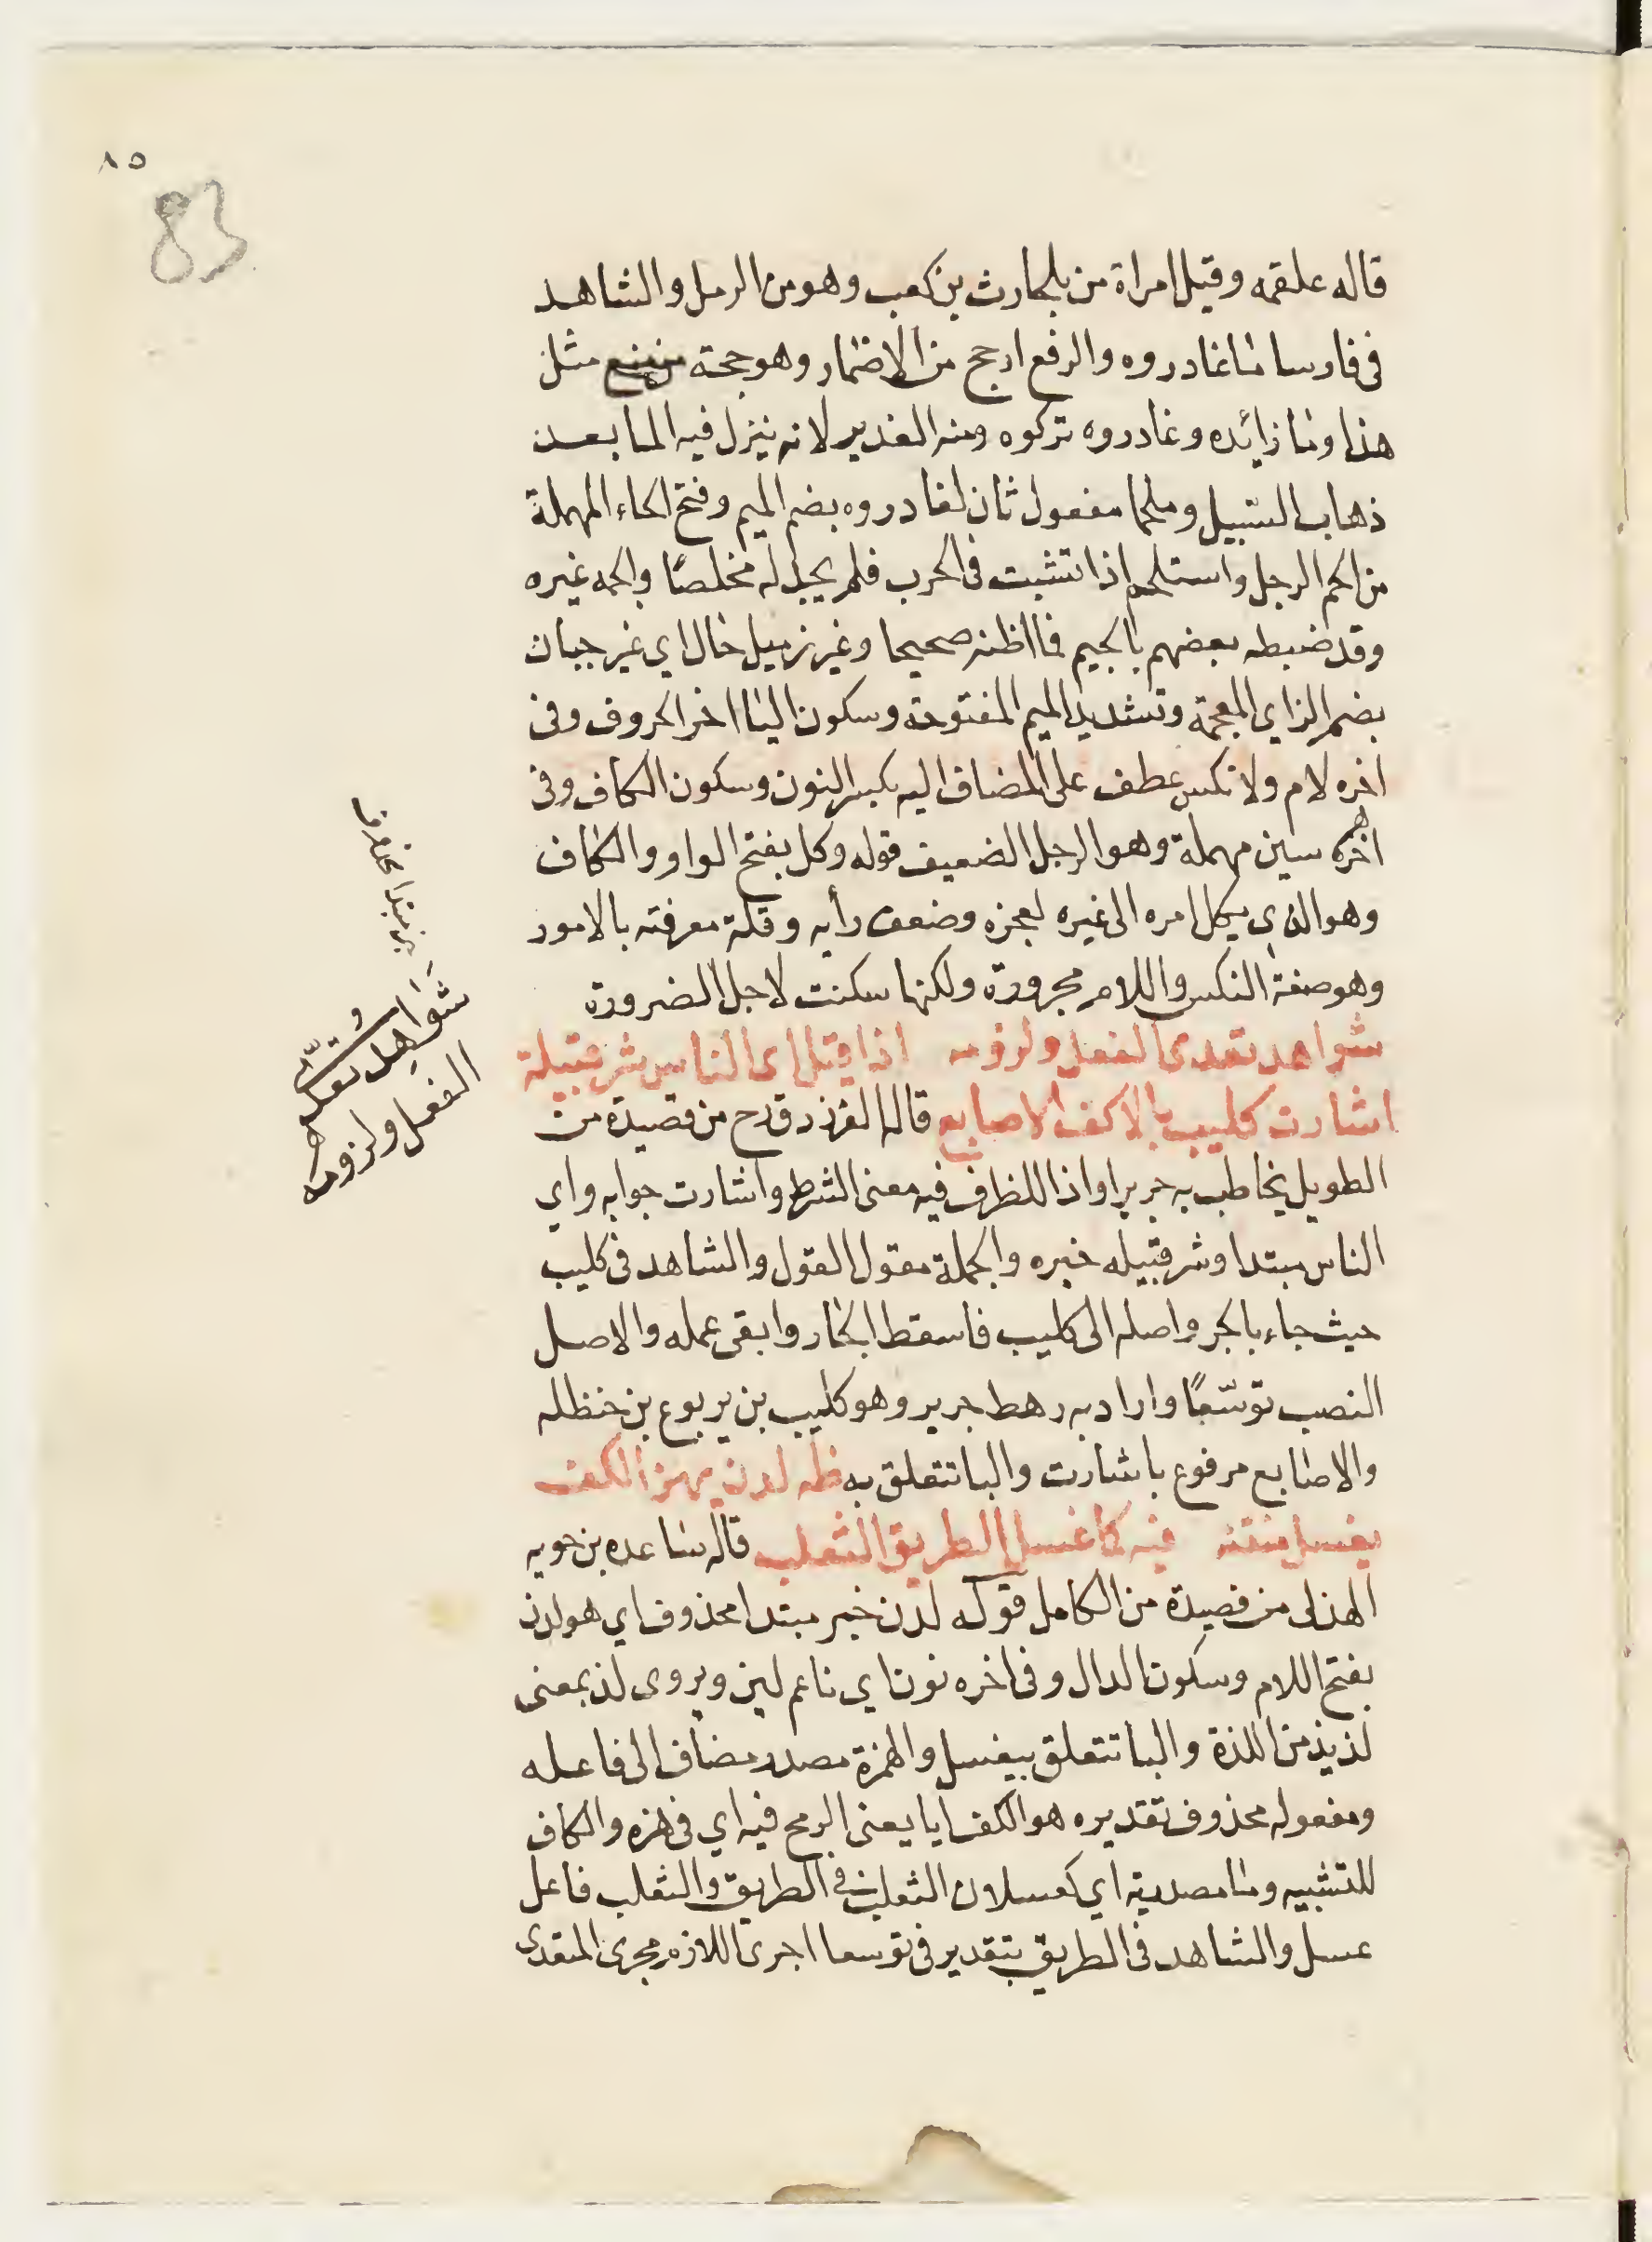 ٨٥
83
قاله علقمه وقيل امراة من بلحارث بن كعب وهو من الرمل والشاهد
فى فارسا ما غادروه والرفع ارجح من الاضمار وهو حجة من منع مثل
هذا وما زائده وغادروه تركوه ومنه الغدير لانه ينزل فيه الما بعد
ذهاب السيل وملحما مفعول ثان لغادروه بضم الميم وفتح الحاء المهملة
من الحم الرجل واستلحم اذا نتشبت فى الحرب فلم يجد له مخلصًا والحمه غيره
وقد ضبطه بعضهم بالجيم فما اظنه صحيحا وغير زميل حال اي غير جبان
بضم الزاي المعجمة وتشديد الميم المفتوحة وسكون اليا اخر الحروف وفى
اخره لام ولا نكس عطف على المضاف اليه بكسر النون وسكون الكاف وفى
اخره سين مهملة وهو الرجل الضعيف قوله وكل بفتح الواو والكاف
وهو الذى يكل امره الى غيره لعجزه وضعف رأيه وقلة معرفته بالامور
وهو صفة النكس واللام مجرورة ولكنها سكنت لاجل الضرورة
شواهد تعدى الفعل ولزومه اذا قيل اى الناس شر قبيلة
اشارت كليب بالاكف الاصابع قاله الفرزدق من قصيدة من
الطويل يخاطب به جريرا واذا للظرف فيه معنى الشرط واشارت جوابه واي
الناس مبتدا وشر قبيله خبره والجملة مقول القول والشاهد فى كليب
حيث جاء بالجر واصله الى كليب فاسقط الجار وابقى عمله والاصل
النصب توسّعًا واراد به رهط جرير وهو كليب بن يربوع بن حنظله
والاصابع مرفوع باشارت والبا تتعلق به لدن بهز الكف
يعسل متنه فيه كما عسل الطريق الثعلب قاله ساعده بن جويه
الهذلى من قصيدة من الكامل قوله لدن خبر مبتدا محذوف اي هو لدن
بفتح اللام وسكون الدال وفى اخره نون اي ناعم لين ويروى لذ بمعنى
لذيذ من اللذة والبا تتعلق بيعسل والهزة مصدر مضاف الى فاعله
ومفعوله محذوف تقديره هو الكف ايا يعنى الرمح فيه اي فى هزه والكاف
للتشبيه وما مصدرية اي كعسلان الثعلب فى الطريق والثعلب فاعل
عسل والشاهد فى الطريق بتقدير فى توسعا اجرى اللازم مجرى المتعدى
خبر مبتدا محذوف
شَوَاهِد تعدّى
الفعل ولزومه